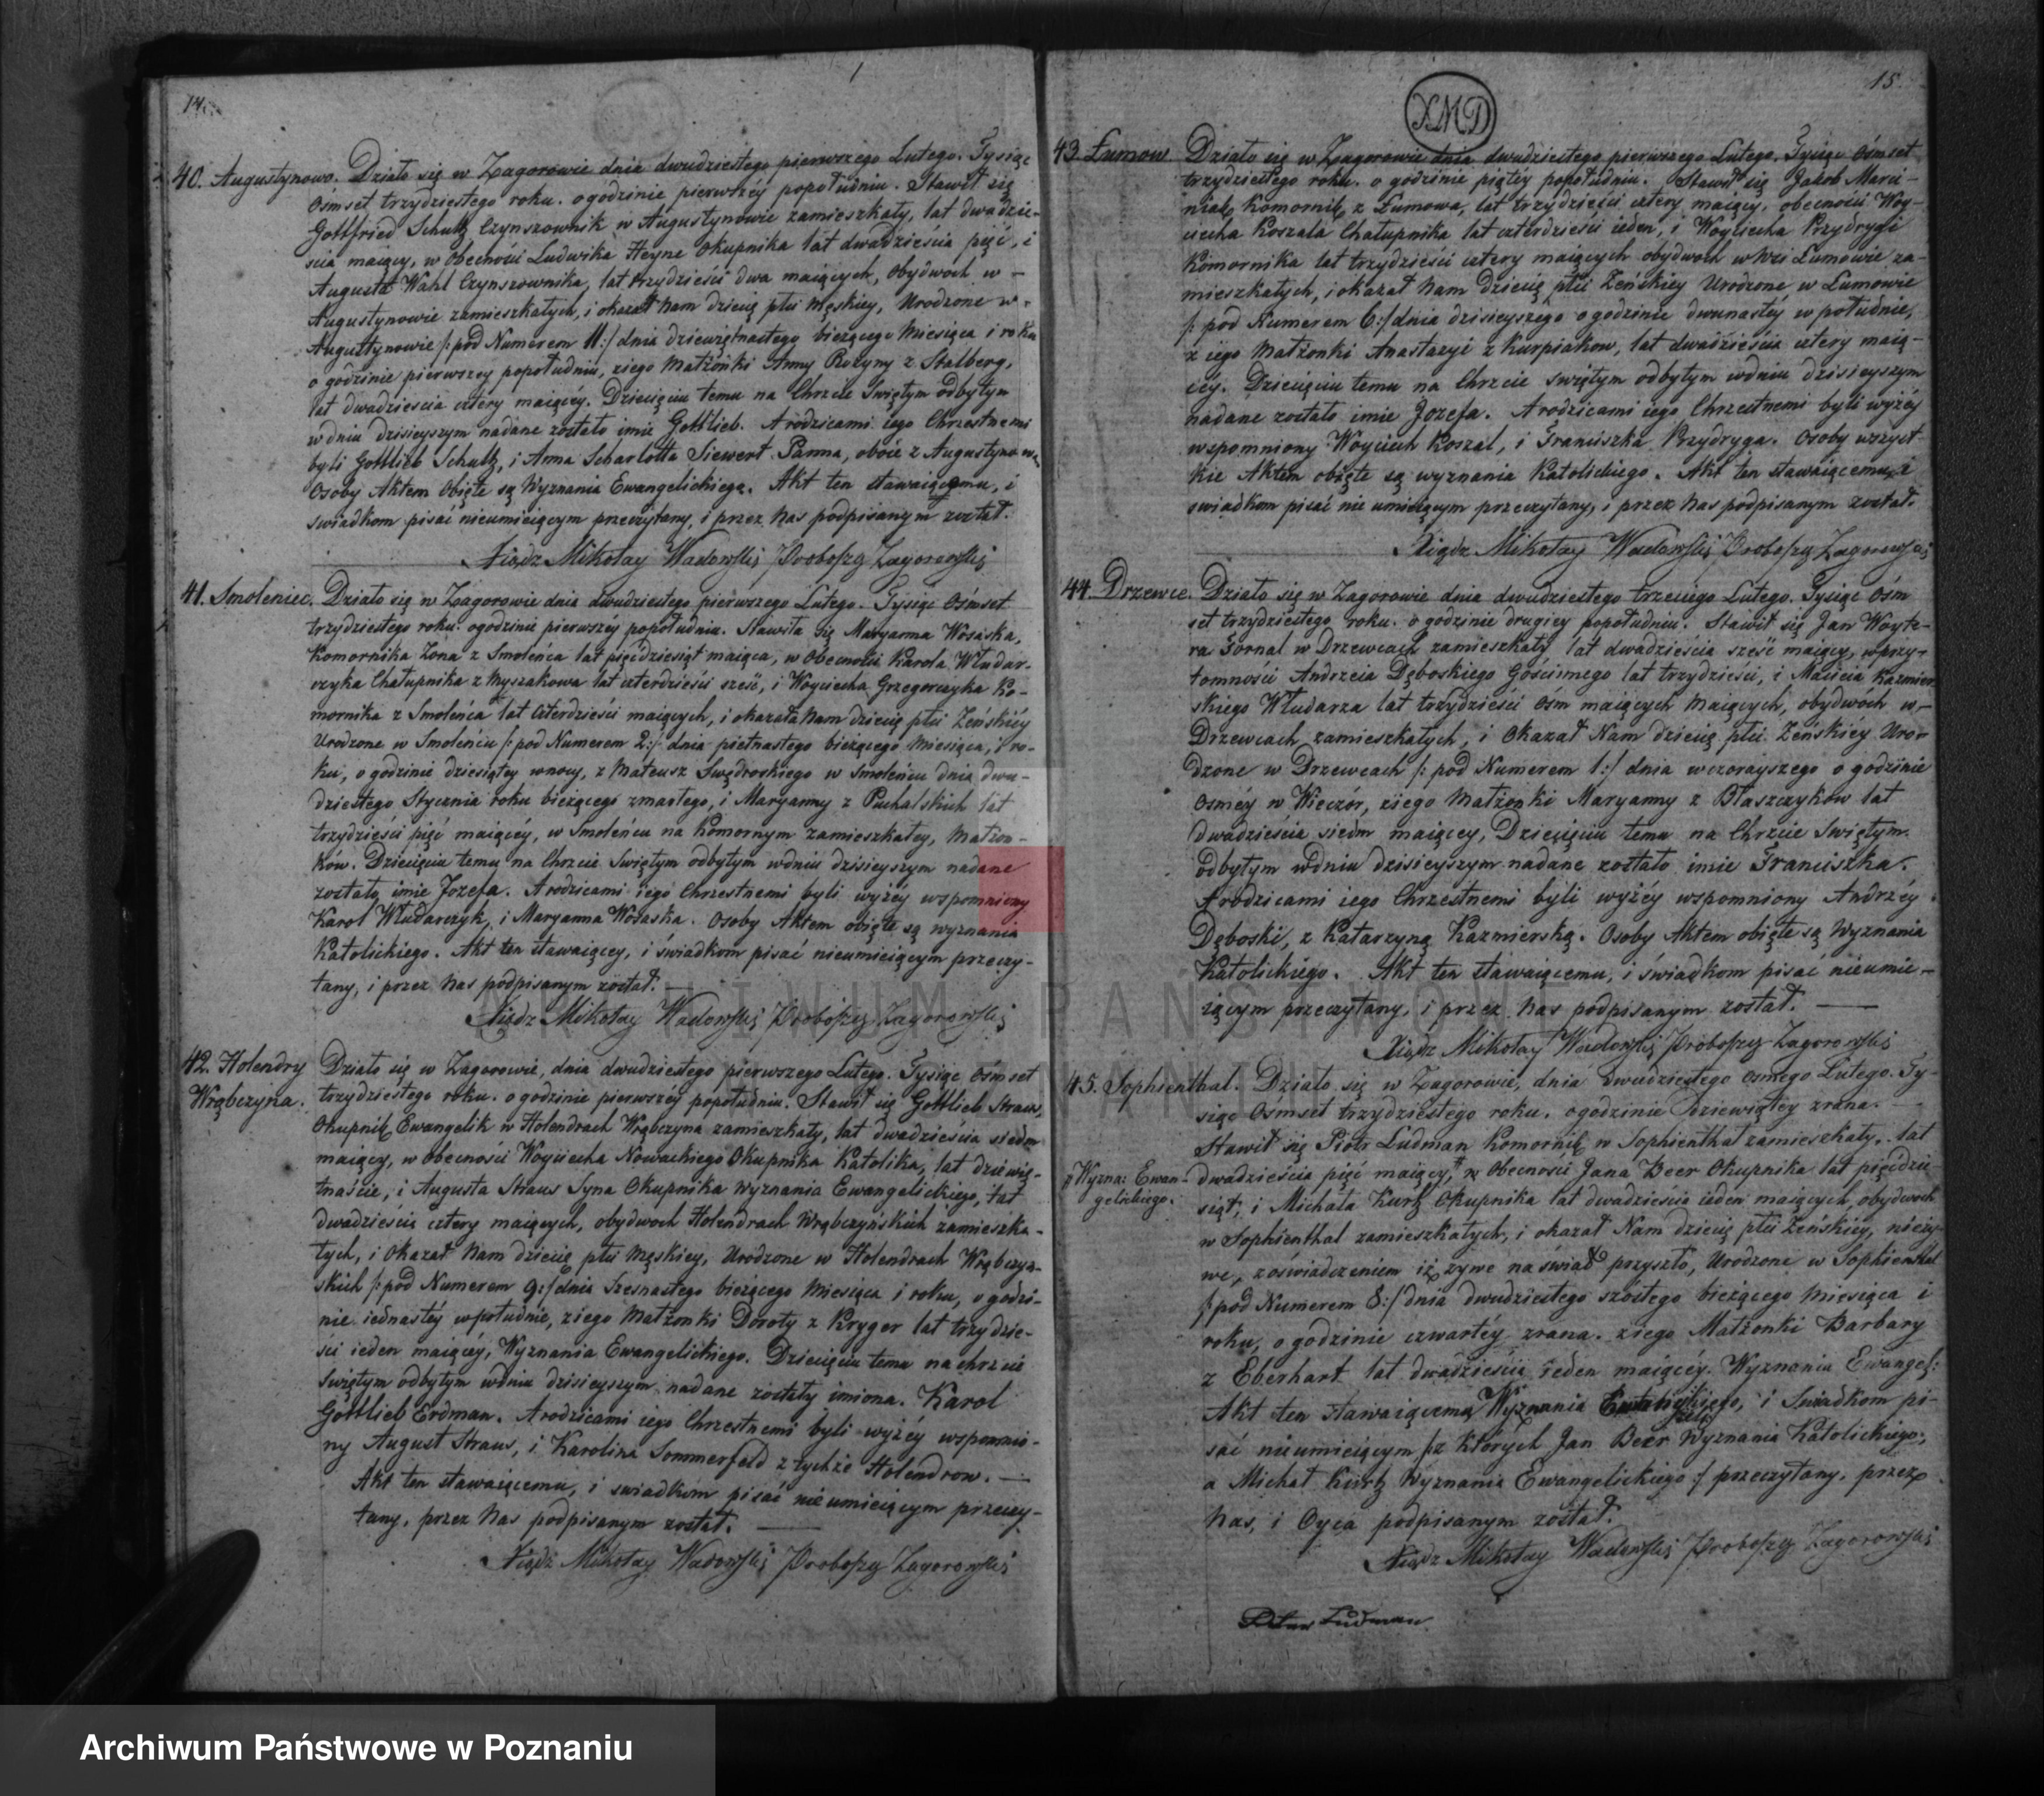 14.
40. Augustynowo. Działo się w Zagorowie dnia dwudziestego pierwszego Lutego. Tysiąc
Ośmset trzydziestego roku. o godzinie pierwszéy popołudniu. Stawił się
Gottfried Schultz Czynszownik w Augustynowie zamieszkały, lat dwadzie-
ścia maiący, w Obecności Ludwika Heyne Okupnika lat dwadzieścia pięć, i
Augusta Wahl Czynszownika, lat trzydzieści dwa maiących, Obydwoch w –
Augustynowie zamieszkałych, i okazał Nam dziecię płci Męskiey, Urodzone w
Augustynowie /: pod Numerem 11:/ dnia dziewiętnastego bieżącego Miesiąca i roku
o godzinie pierwszey popołudniu, z iego Małżonki Anny Rozyny z Stalberg,
lat dwadzieścia cztéry maiącéy. Dziecięciu temu na Chrzcie Swiętym odbytym
w dniu dzisieyszym nadane zostało imie Gottlieb. A rodzicami iego Chrzestnemi
byli Gottlieb Schultz, i Anna Scharlotta Siewert Panna, oboie z Augustynowa
Osoby Aktem Obięte są Wyznania Ewangelickiego. Akt ten stawaiącemu, i
swiadkom pisać nieumieiącym przeczytany, i przez Nas podpisanym został.
Xiądz Mikołay Wadowski Proboszcz Zagorowski
41. Smoleniec. Działo się w Zagorowie dnia dwudziestego pierwszego Lutego. Tysiąc Ośmset
trzydziestego roku. o godzinie pierwszéy popołudniu. Stawiła się Maryanna Wosaska,
Komornika Zona z Smoleńca lat pięćdziesiąt maiąca, w Obecności Karola Włudar-
czyka Chałupnika z Myszakowa lat czterdzieści sześć, i Woyciecha Grzegorczyka Ko-
mornika z Smoleńca lat czterdzieści maiących, i okazała Nam dziecię płci Zeńskiéy
Urodzone w Smoleńcu /: pod Numerem 2:/ dnia pietnastego bieżącego Miesiąca, i ro-
ku, o godzinie dziesiątey wnocy, z Mateusz Swędrowskiego w Smoleńcu dnia dwu-
dziestego Stycznia roku bieżącego zmarłego, i Maryanny z Puchalskich lat
trzydzieści pięć maiącéy, w Smoleńcu na Komornym zamieszkałey, Małżon-
ków. Dziecięciu temu na Chrzcie Swiętym odbytym wdniu dzisieyszym nadane
zostało imie Jozefa. A rodzicami iego Chrzestnemi byli wyżéy wspomniony
Karol Włudarczyk, i Maryanna Wosaska. Osoby Aktem obięte są wyznania
Katolickiego. Akt ten stawaiącey, i świadkom pisać nieumieiącym przeczy-
tany, i przez Nas podpisanym został.
Xiądz Mikołay Wadowski Proboszcz Zagorowski
42. Holendry Działo się w Zagorowie, dnia dwudziestego pierwszego Lutego. Tysiąc Ośmset
Wrąbczyna. trzydziestego roku. o godzinie pierwszéy popołudniu. Stawił się Gottlieb Straus
Okupnik Ewangelik w Holendrach Wrąbczyna zamieszkały, lat dwadzieścia siedm
maiący, w obecności Woyciecha Nowackiego Okupnika Katolika, lat dziewię-
tnaście, i Augusta Straus Syna Okupnika Wyznania Ewangelickiego, lat
dwadzieścia cztery maiących, obydwoch Holendrach Wrąbczyńskich zamieszka-
łych, i Okazał Nam dziecię płci Męskiey, Urodzone w Holendrach Wrąbczyń-
skich /: pod Numerem 9:/ dnia Szesnastego bieżącego Miesiąca i roku, o godzi-
nie iednastéy wpołudnie, z iego Małżonki Doroty z Kryger lat trzydzie-
ści ieden maiącéy, Wyznania Ewangelickiego. Dziecięciu temu na chrzcie
Swiętym odbytym wdniu dzisieyszym nadane zostały imiona. Karol
Gottlieb Erdman. A rodzicami iego Chrzestnemi byli wyżéy wspomnio-
ny August Straus, i Karolina Sommerfeld z tychże Holendrow. —
Akt ten stawaiącemu, i swiadkom pisać nieumieiącym przeczy-
tany, przez Nas podpisanym został. —
Xiądz Mikołay Wadowski Proboszcz Zagorowski
XMD
15.
43. Łumow Działo się w Zagorowie dnia dwudziestego pierwszego Lutego. Tysiąc Ośmset
trzydziestego roku. o godzinie piątéy popołudniu. Stawił się Jakob Marci-
niak Komornik z Łumowa, lat trzydzieści cztery maiący, obecności Woy-
ciecha Koszala Chałupnika lat czterdzieści ieden, i Woyciecha Przydrygi
Komornika lat trzydzieści cztery maiących obydwoch wWsi Łumowie za-
mieszkałych, i okazał Nam dziecię płci Zeńskiey Urodzone w Łumowie
/: pod Numerem 6:/ dnia dzisieyszego o godzinie dwunastéy w południe,
z iego Małżonki Anastazyi z Kurpiakow, lat dwadzieścia cztery maią-
céy. Dziecięciu temu na Chrzcie swiętym odbytym wdniu dzisieyszym
nadane zostało imie Jozefa. A rodzicami iego Chrzestnemi byli wyżéy
wspomniony Woyciech Koszal, i Franciszka Przydryga. Osoby wszyst-
kie Aktem obięte są wyznania Katolickiego. Akt ten stawaiącemu, i
swiadkom pisać nie umieiącym przeczytany, i przez Nas podpisanym został.
Xiądz Mikołay Wadowski Proboszcz Zagorowski
44. Drzewce. Działo się w Zagorowie dnia dwudziestego trzeciego Lutego. Tysiąc Ośm
set trzydziestego roku. o godzinie drugiey popołudniu. Stawił się Jan Woyte-
ra Fornal w Drzewcach zamieszkały lat dwadzieścia sześć maiący, wprzy-
tomności Andrzeia Dęboskiego Gościnnego lat trzydzieści, i Macieia Kazmier
skiego Włudarza lat trzydzieści Ośm maiących Maiących, obydwóch w –
Drzewcach zamieszkałych, i Okazał Nam dziecię płci Zeńskiéy Uro-
dzone w Drzewcach /: pod Numerem 1:/ dnia wczorayszego o godzinie
Osméy w Wieczór, z iego Małżonki Maryanny z Błaszczyków lat
dwadzieścia siedm maiącey, Dziecięciu temu na Chrzcie Swiętym
odbytym wdniu dzisieyszym nadane zostało imie Franciszka.
A rodzicami iego Chrzestnemi byli wyżéy wspomniony Andrzéy
Dęboski, z Katarzyną Kazmierską. Osoby Aktem obięte są Wyznania
Katolickiego. Akt ten stawaiącemu, i świadkom pisać nieumie-
iącym przeczytany, i przez Nas podpisanym został. —
Xiądz Mikołay Wadowski Proboszcz Zagorowski
45. Sophienthal. Działo się w Zagorowie, dnia dwudziestego osmego Lutego. Ty-
siąc Ośmset trzydziestego roku. o godzinie dziewiątey zrana. —
Stawił się Piotr Ludman Komornik w Sophienthal zamieszkały, lat
/: Wyzna: Ewan- dwadzieścia pięć maiący, w Obecności Jana Beer Okupnika lat pięćdzie-
gelickiego. siąt, i Michała Kurtz Okupnika lat dwadzieścia ieden maiących, obydwoch
w Sophienthal zamieszkałych, i okazał Nam dziecię płci Zeńskiey, nieży-
we, z oświadczeniem iż żywe na świat przyszło, Urodzone w Sophienthal
/: pod Numerem 8:/ dnia dwudziestego szóstego bieżącego Miesiąca i
roku, o godzinie czwartéy zrana. z iego Małżonki Barbary
z Eberhart lat dwadzieścia ieden maiącéy. Wyznania Ewangel:
Akt ten stawaiącemu Wyznania i Swiadkom pi-
sać nieumieiącym /: z których Jan Beer Wyznania Katolickiego,
a Michał Kurtz Wyznania Ewangelickiego :/ przeczytany, przez
Nas, i Oyca podpisanym został.
Xiądz Mikołay Wadowski Proboszcz Zagorowski
Peter Ludman
ARCHIWUM PAŃSTWOW
Archiwum Państwowe w Poznaniu